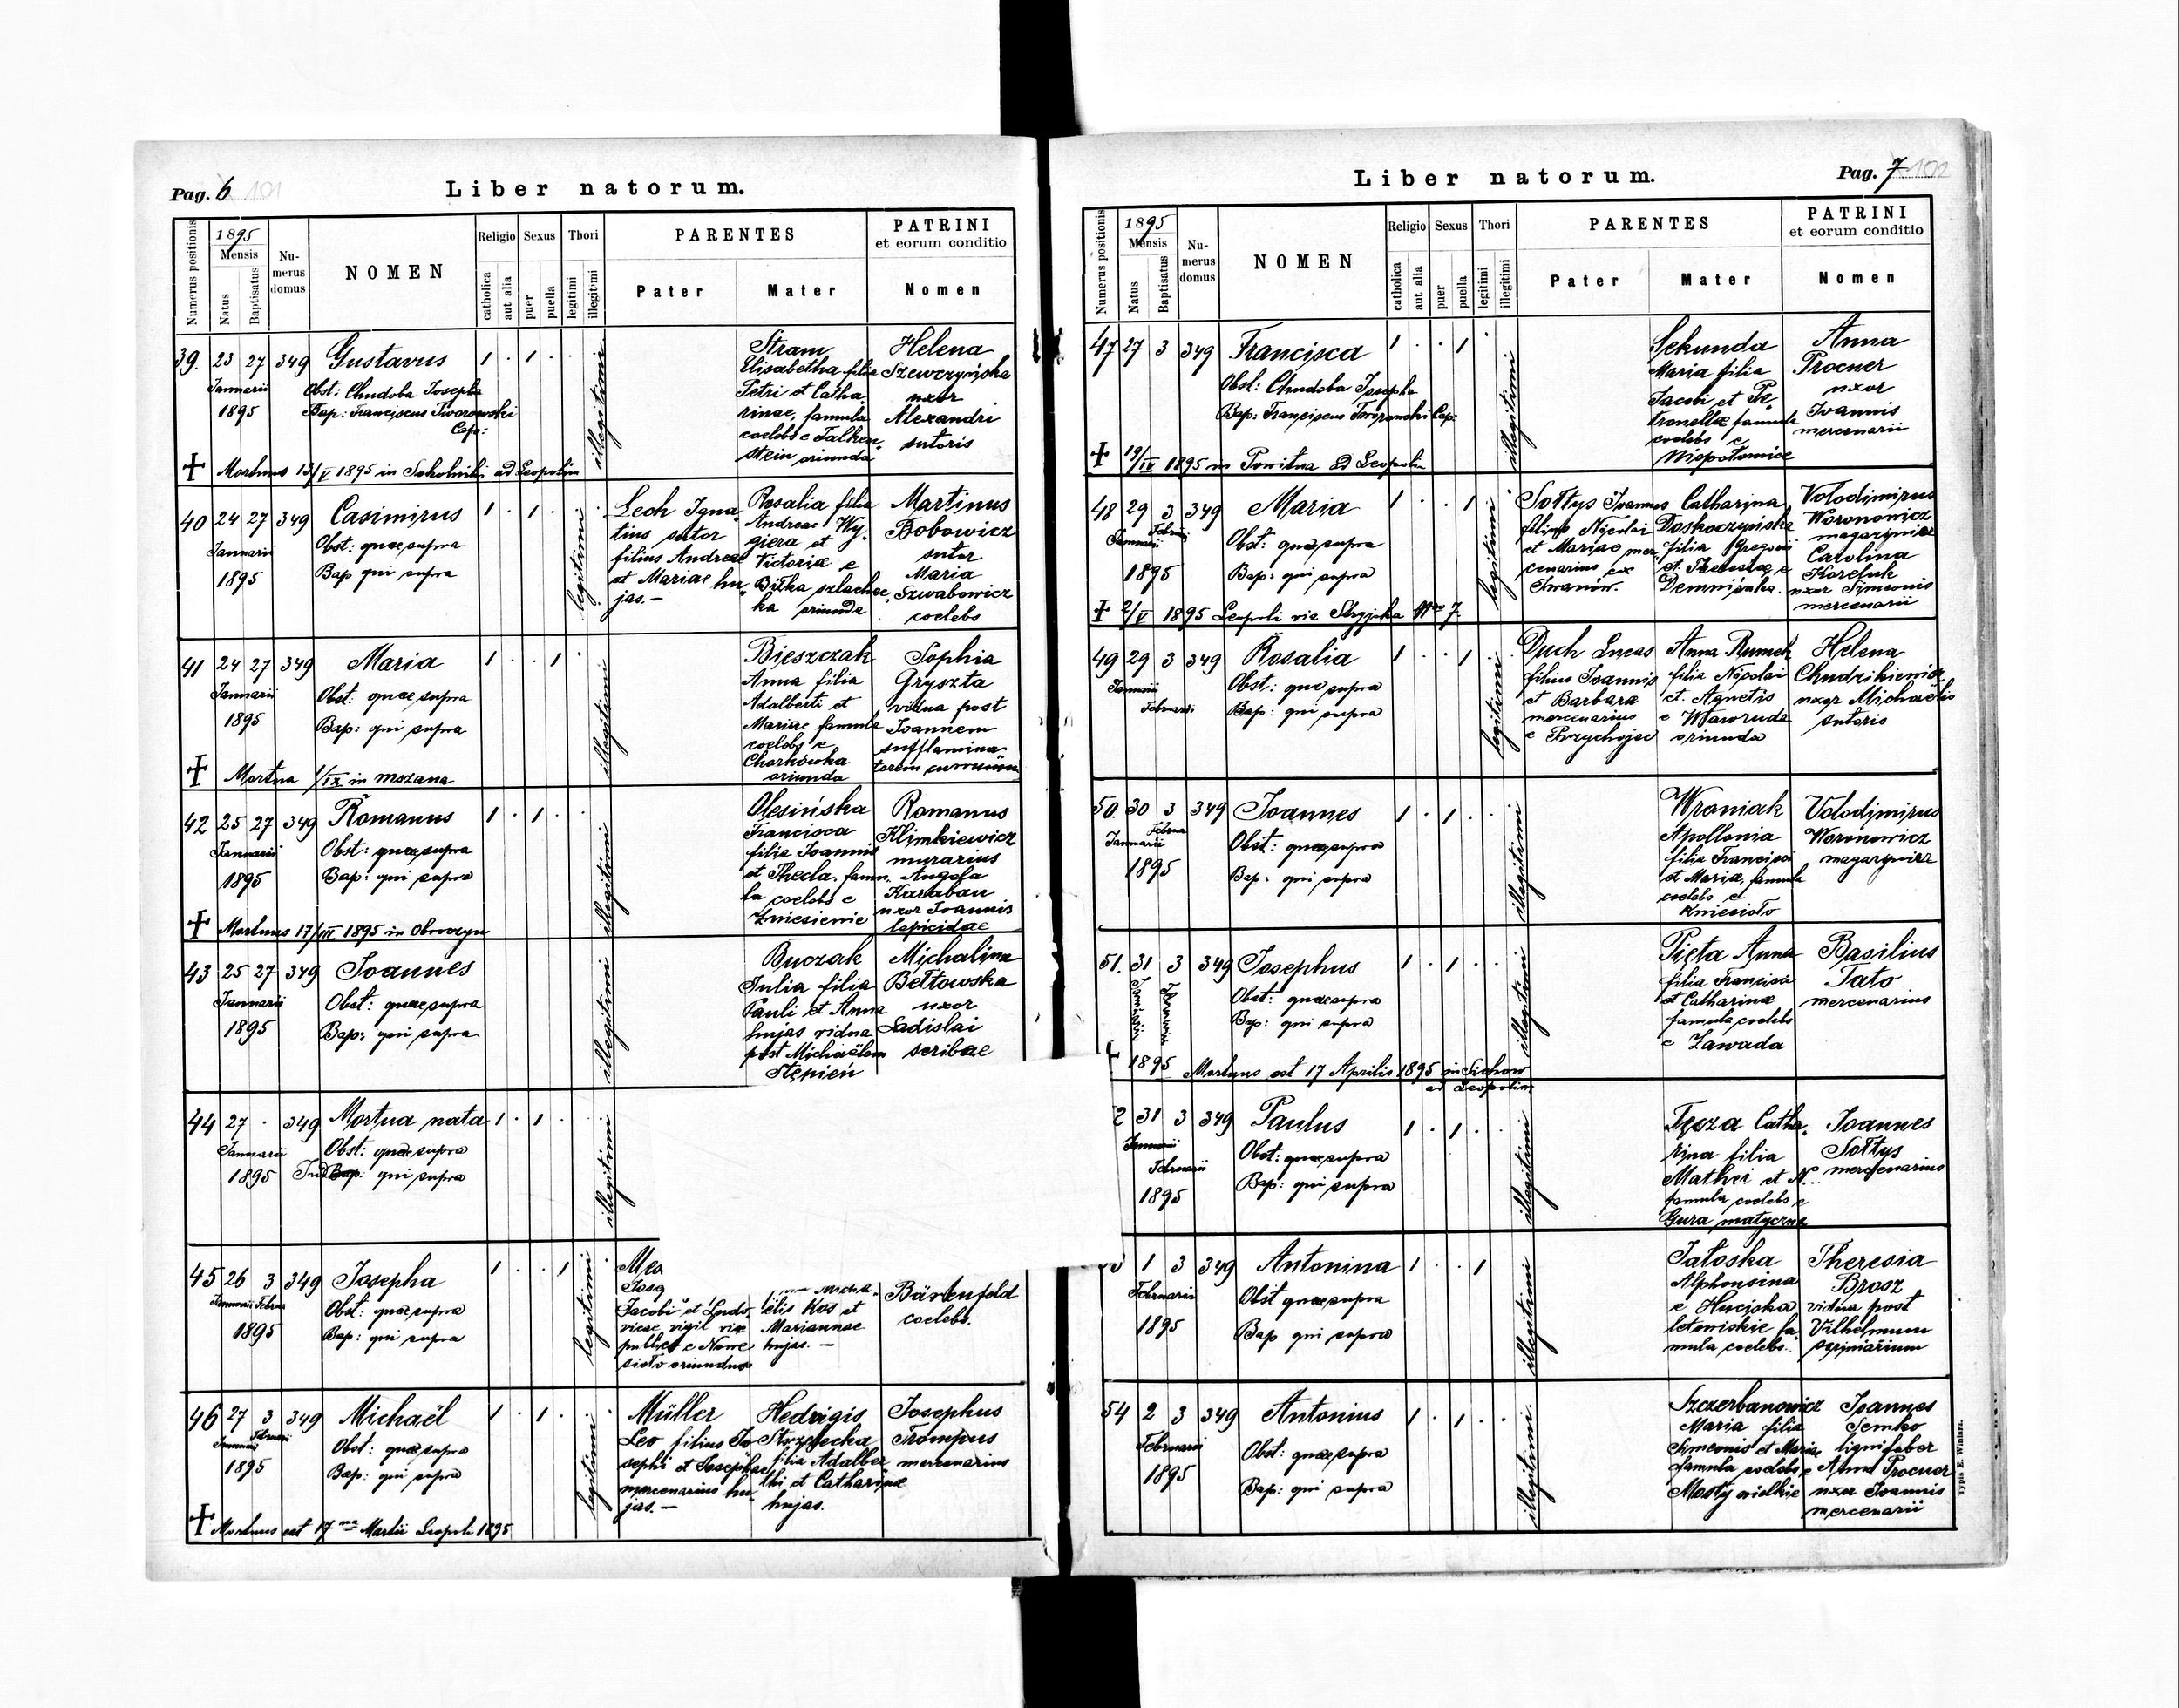 Pag. 6 101
Liber natorum.
Numerus positionis
1895
Mensis
Natus
Baptisatus
Nu-
merus
domus
NOMEN
Religio
catholica
aut alia
Sexus
puer
puella
Thori
legitimi
illegitimi
PARENTES
Pater
Mater
PATRINI
et eorum conditio
Nomen
39. 23 27 349 Gustavus 1 . 1 . .
Januarii
1895
Obst: Chudoba Josepha
Bap: Franciscus Tworowski
Cap:
illegitimi
Stram
Elisabetha filia
Petri et Catha-
rinae, famula
coelebs e Falken-
stein oriunda
Helena
Szewczyńska
uxor
Alexandri
sutoris
+ Mortuus 13/V 1895 in Sokolniki ad Leopolim
40 24 27 349 Casimirus 1 . 1 . .
Januarii
1895
Obst: quae supra
Bap qui supra
legitimi
Lech Igna-
tius sutor
filius Andreae
et Mariae hu-
jas.—
Rosalia filia
Andreae Wy-
giera et
Victoria e
Biłka szlachec-
ka oriunda
Martinus
Bobowicz
sutor
Maria
Szwabowicz
coelebs
41 24 27 349 Maria 1 . . 1 .
Januarii
1895
Obst: quae supra
Bap: qui supra
illegitimi
Bieszczak
Anna filia
Adalberti et
Mariae famula
coelebs e
Chorkówka
oriunda
Sophia
Gryszta
vidua post
Joannem
sufflamina-
torem curruum
+ Mortua 1/IX in mszana
42 25 27 349 Romanus 1 . 1 . .
Januarii
1895
Obst: quae supra
Bap: qui supra
illegitimi
Olesińska
Francisca
filia Joannis
et Thecla, famu-
la coelebs e
Zniesienie
Romanus
Klimkiewicz
murarius
Angela
Karaban
uxor Joannis
lapicidae
+ Mortuus 17/III 1895 in Obroszyn
43 25 27 349 Joannes
Januarii
1895
Obst: quae supra
Bap: qui supra
illegitimi
Buczak
Julia filia
Pauli et Anna
hujas vidua
post Michaëlem
Stępień
Michalina
Bełtowska
uxor
Ladislai
scribae
44 27 . 349 Mortua nata 1 . 1 .
Januarii
1895
Obst: quae supra
qui supra
illegitimi
45 26 3 349 Josepha 1 . . 1 .
Januarii Februa
1895
Obst: quae supra
Bap: qui supra
legitimi
Jacobi et Ludo-
vicae, vigil viae
publicae e Nowe
sioło oriundus
Micha-
ëlis Kos et
Mariannae
hujas.—
Bärtenfeld
coelebs.
46 27 3 349 Michaël 1 . 1 . .
Januarii Februarii
1895
Obst: quae supra
Bap: qui supra
legitimi
Müller
Leo filius Jo-
sephi et Josephae
mercenarius hu-
jas.—
Hedvigis
Strzelecka
filia Adalber-
thi et Catharinae
hujas.
Josephus
Trompus
mercenarius
+ Mortuus est 17ma Martii Leopoli 1895
Liber natorum.
Pag. 7 102
Numerus positionis
1895
Mensis
Natus
Baptisatus
Nu-
merus
domus
NOMEN
Religio
catholica
aut alia
Sexus
puer
puella
Thori
legitimi
illegitimi
PARENTES
Pater
Mater
PATRINI
et eorum conditio
Nomen
47 27 3 349 Francisca 1 . . 1 .
Obst: Chudoba Josepha
Bap: Franciscus Tworowski Cap:
illegitimi
Sekunda
Maria filia
Jacobi et Pe-
tronellae famula
coelebs e
Niepołomice
Anna
Procner
uxor
Joannis
mercenarii
+ 19/IV 1895 in Powitna ad Leopolim
48 29 3 349 Maria 1 . . 1 .
Januarii Februarii
1895
Obst: quae supra
Bap: qui supra
legitimi
Sołtys Joannes
filius Nicolai
et Mariae mer-
cenarius ex
Iwanów.
Catharina
Doskoczyńska
filia Gregorii
et
Demnianka.
Volodimirus
Woronowicz
magazynier
Carolina
Koreluk
uxor Simeonis
mercenarii
+ 2/V 1895 Leopoli via Stryjska Nro 7.
49 29 3 349 Rosalia 1 . . 1 .
Januarii
Februarii
Obst: quae supra
Bap: qui supra
legitimi
Duch Lucas
filius Joannis
et Barbara
mercenarius
e Przychojec
Anna Rumek
filia Nicolai
et Agnetis
e
oriunda
Helena
Chudzikiewicz
uxor Michaëlis
sutoris
50. 30 3 349 Joannes 1 . 1 . .
Januarii Februa
1895
Obst: quae supra
Bap: qui supra
illegitimi
Wroniak
Apollonia
filia Francisci
et Maria, famula
coelebs e
Kniesioło
Volodimirus
Woronowicz
magazynier
51. 31 3 349 Josephus 1 . 1 . .
Januarii Februarii
1895
Obst: quae supra
Bap: qui supra
illegitimi
Pięta Anna
filia Francisci
et Catharinae
famula coelebs
e Zawada
Basilius
Tato
mercenarius
Mortuus est 17 Aprilis 1895 in Sichow
ad Leopolim
2 31 3 349 Paulus 1 . 1 .
Januarii
Februarii
1895
Obst: quae supra
Bap: qui supra
illegitimi
Tęcza Catha-
rina filia
Mathei et N...
famula coelebs e
Gura matyczna
Joannes
Sołtys
mercenarius
1 3 349 Antonina 1 . . 1
Februarii
1895
Obst quae supra
Bap qui supra
illegitimi
Jałoska
Alphonsina
e Hucisko
letowiskie fa-
mula coelebs.
Theresia
Brosz
vidua post
Vilhelmum
scriniarium
54 2 3 349 Antonius 1 . 1 . .
Februarii
1895
Obst: quae supra
Bap: qui supra
illegitimi
Szczerbanowicz
Maria filia
Simeonis et Mariae
famula coelebs e
Mosty wielkie
Joannes
Semko
lignifaber
Anna Procner
uxor Joannis
mercenarii
Typis E. Winiarz.